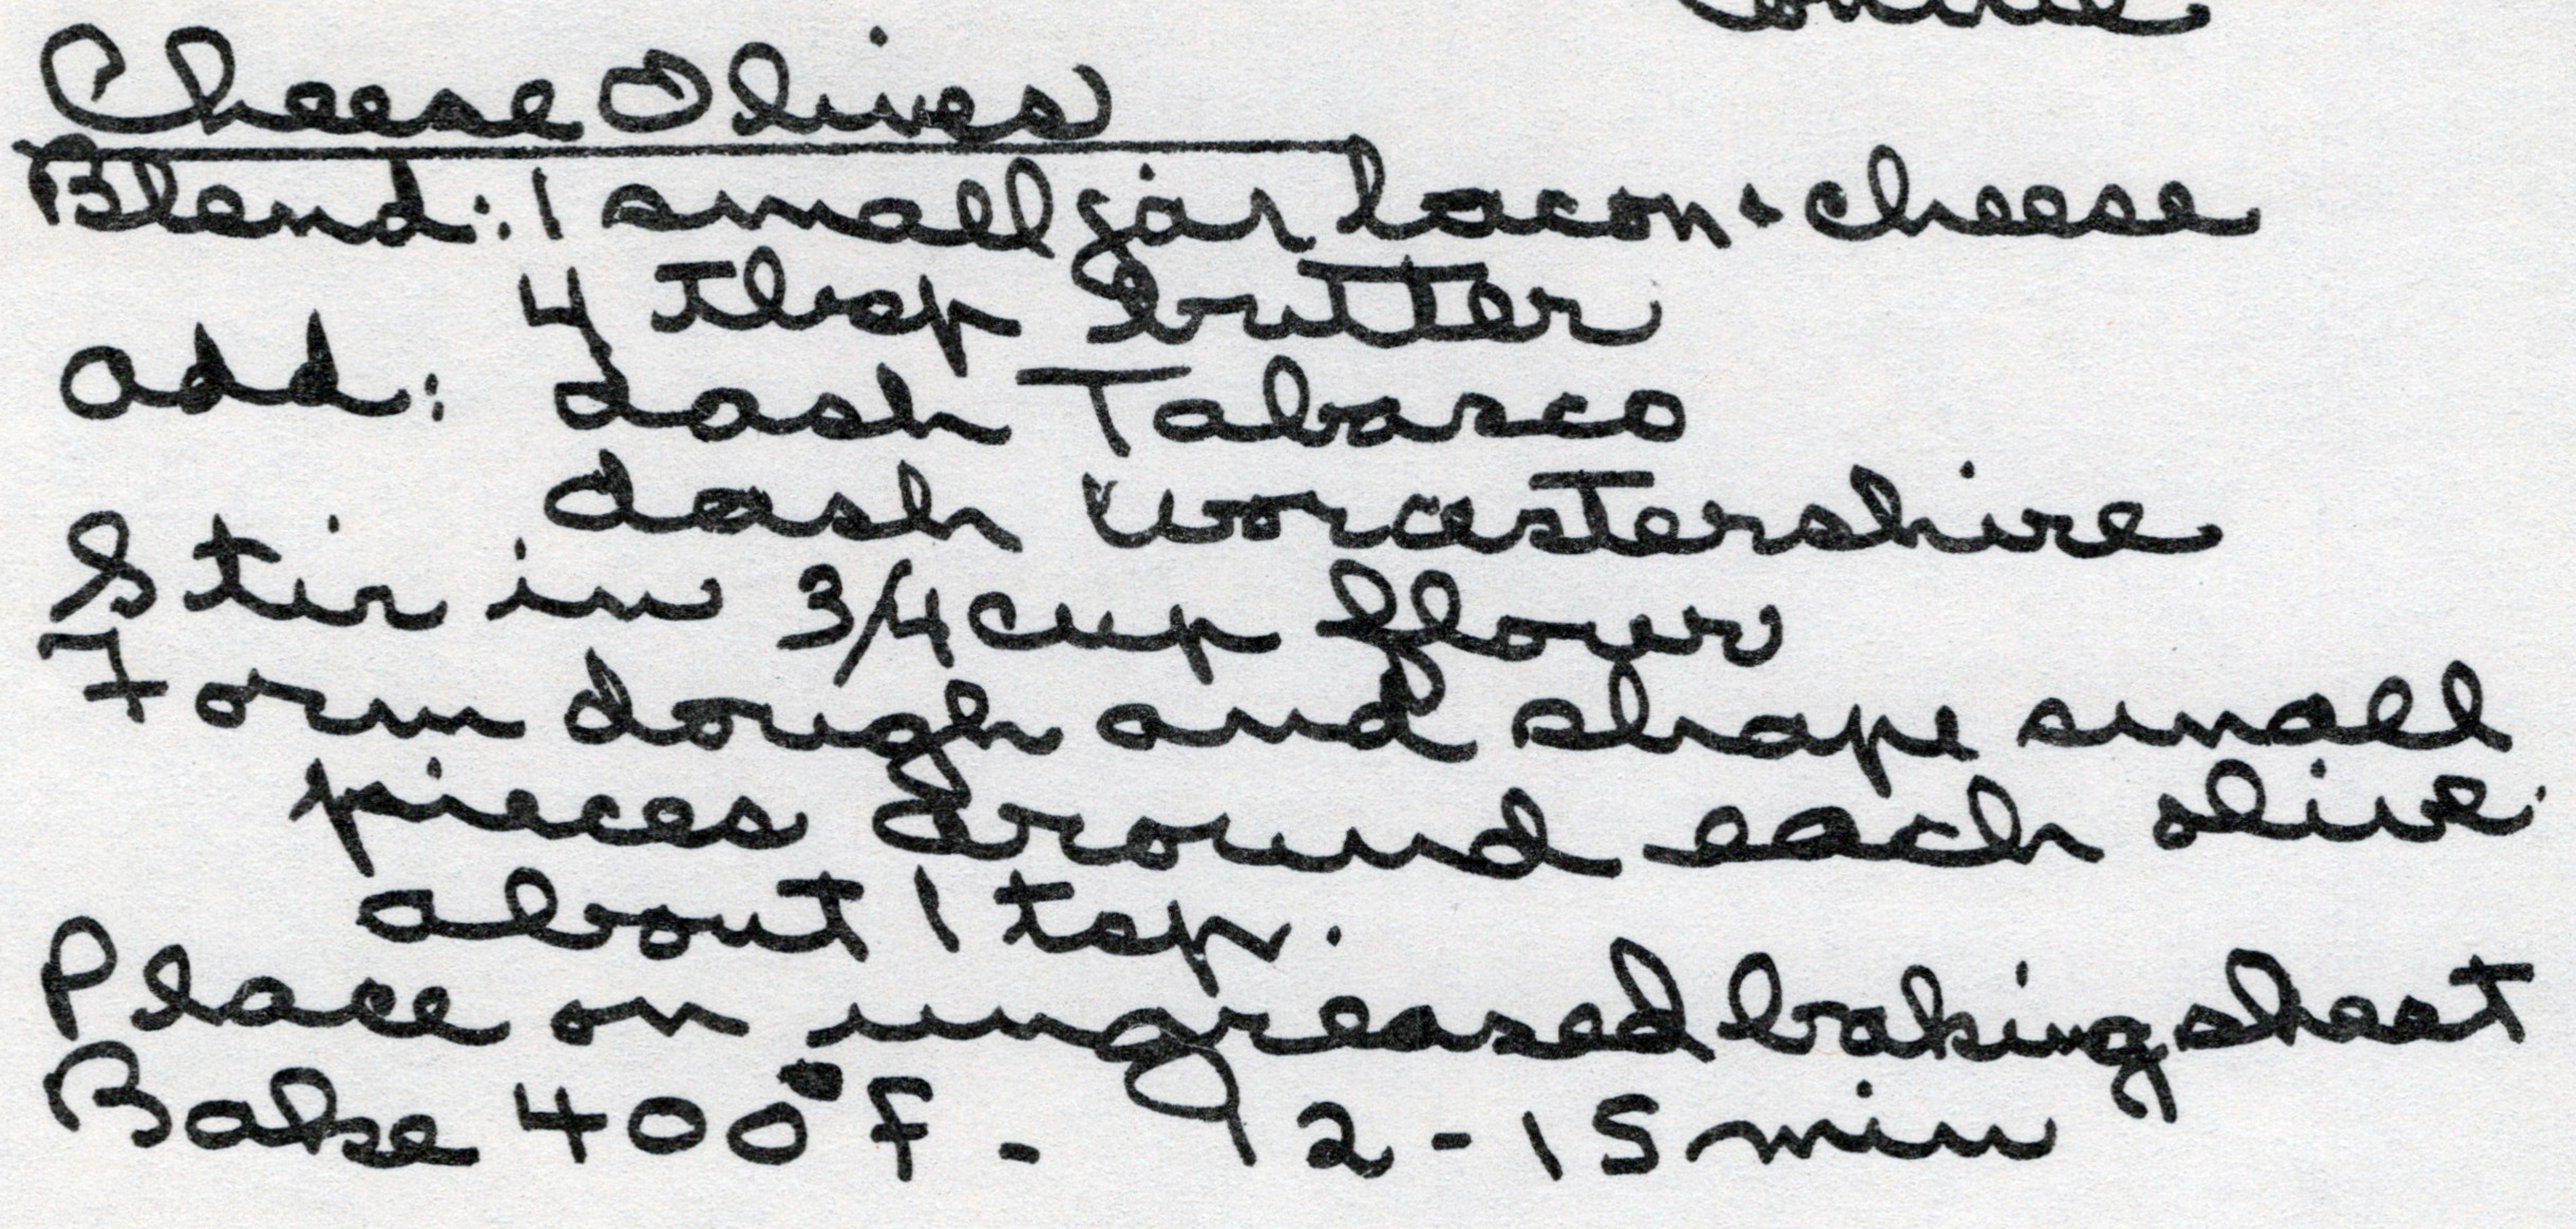 Cheese Olives
Blend: 1 small jar bacon & cheese
4 Tbsp butter
add: dash Tabasco
dash Worcestershire
Stir in 3/4 cup flour
Form dough and shape small
pieces around each olive.
about 1 tsp.
Place on ungreased baking sheet
Bake 400°F - 12-15 min